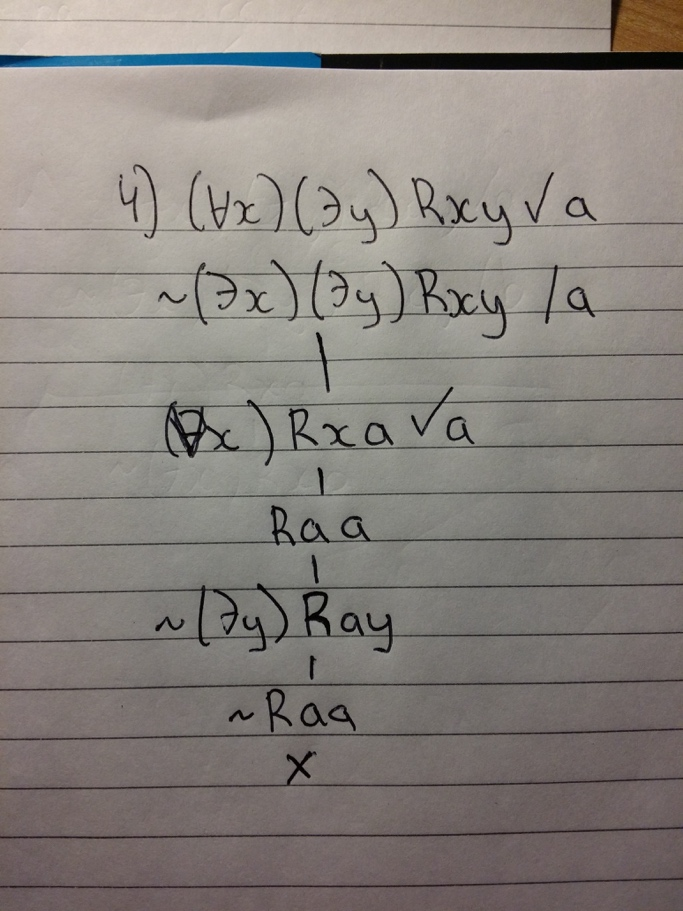 4) (∀x)(∃y)Rxy✓a
~(∃x)(∃y)Rxy /a
(∀x)Rxa✓a
Raa
~(∃y)Ray
~Raa
X